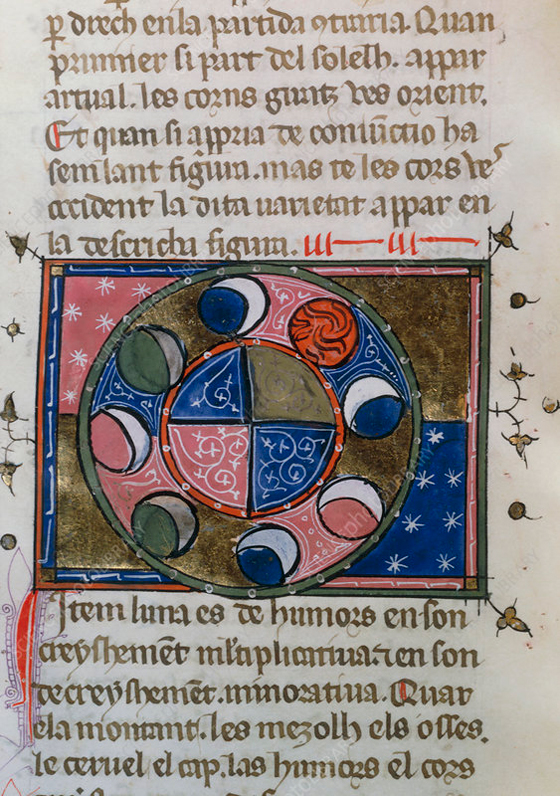 p drech en la partida oturia. Quan
prumier si part del solelh. appar
artual. les corns giratz ves orient.
Et quan si appria de coniūctio ha
semlant figura. mas te les cors ves
occident la dita uarietat appar en
la descricha figura.
Item luna es de humors en son
creyshemēt mltiplicatiua. z en son
decreyshemēt. minoratiua. Quar
ela montant. les mezolh els osses.
le ceruel el cap. las humors el cors